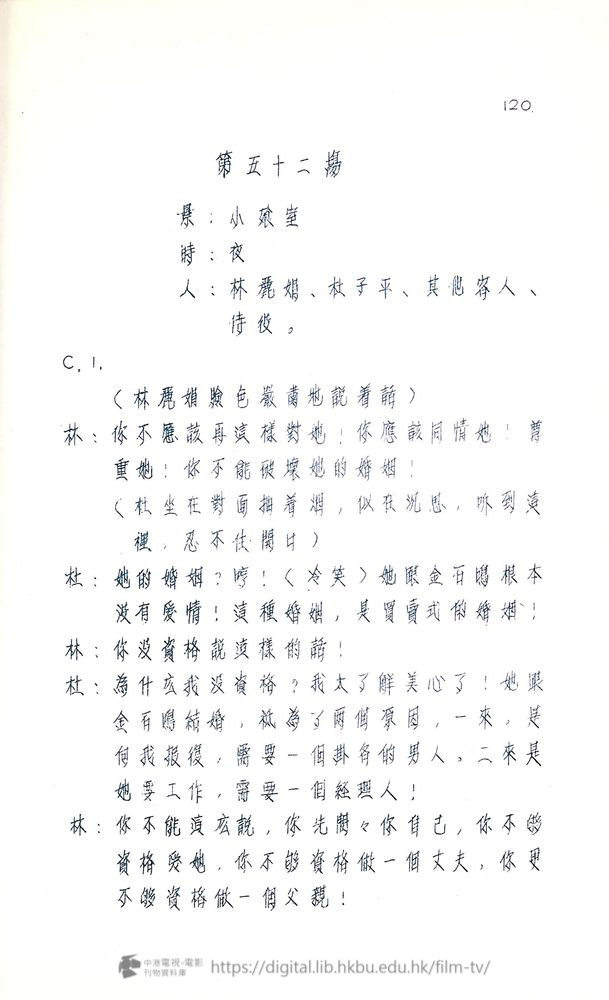 120.
第五十二場
景：小飯室
時：夜
人：林麗娟、杜子平、其他客人、
侍役。
C. 1.
（林麗娟臉色嚴肅地說着話）
林：你不應該再這樣對她！你應該同情她！尊
重她！你不能破壞她的婚姻！
（杜坐在對面抽着烟，似在沉思，听到這
裡，忍不住開口）
杜：她的婚姻？哼！（冷笑）她跟金石鳴根本
没有愛情！這種婚姻，是買賣式的婚姻！
林：你没資格說這樣的話！
杜：為什広我没資格？我太了解美心了！她跟
金石鳴結婚，祗為了両個原因，一來，是
向我报復，需要一個掛名的男人。二來是
她要工作，需要一個經理人！
林：你不能這広說，你先問々你自己，你不够
資格愛她，你不够資格做一個丈夫，你更
不够資格做一個父親！
中港電視・電影
刊物資料庫
https://digital.lib.hkbu.edu.hk/film-tv/